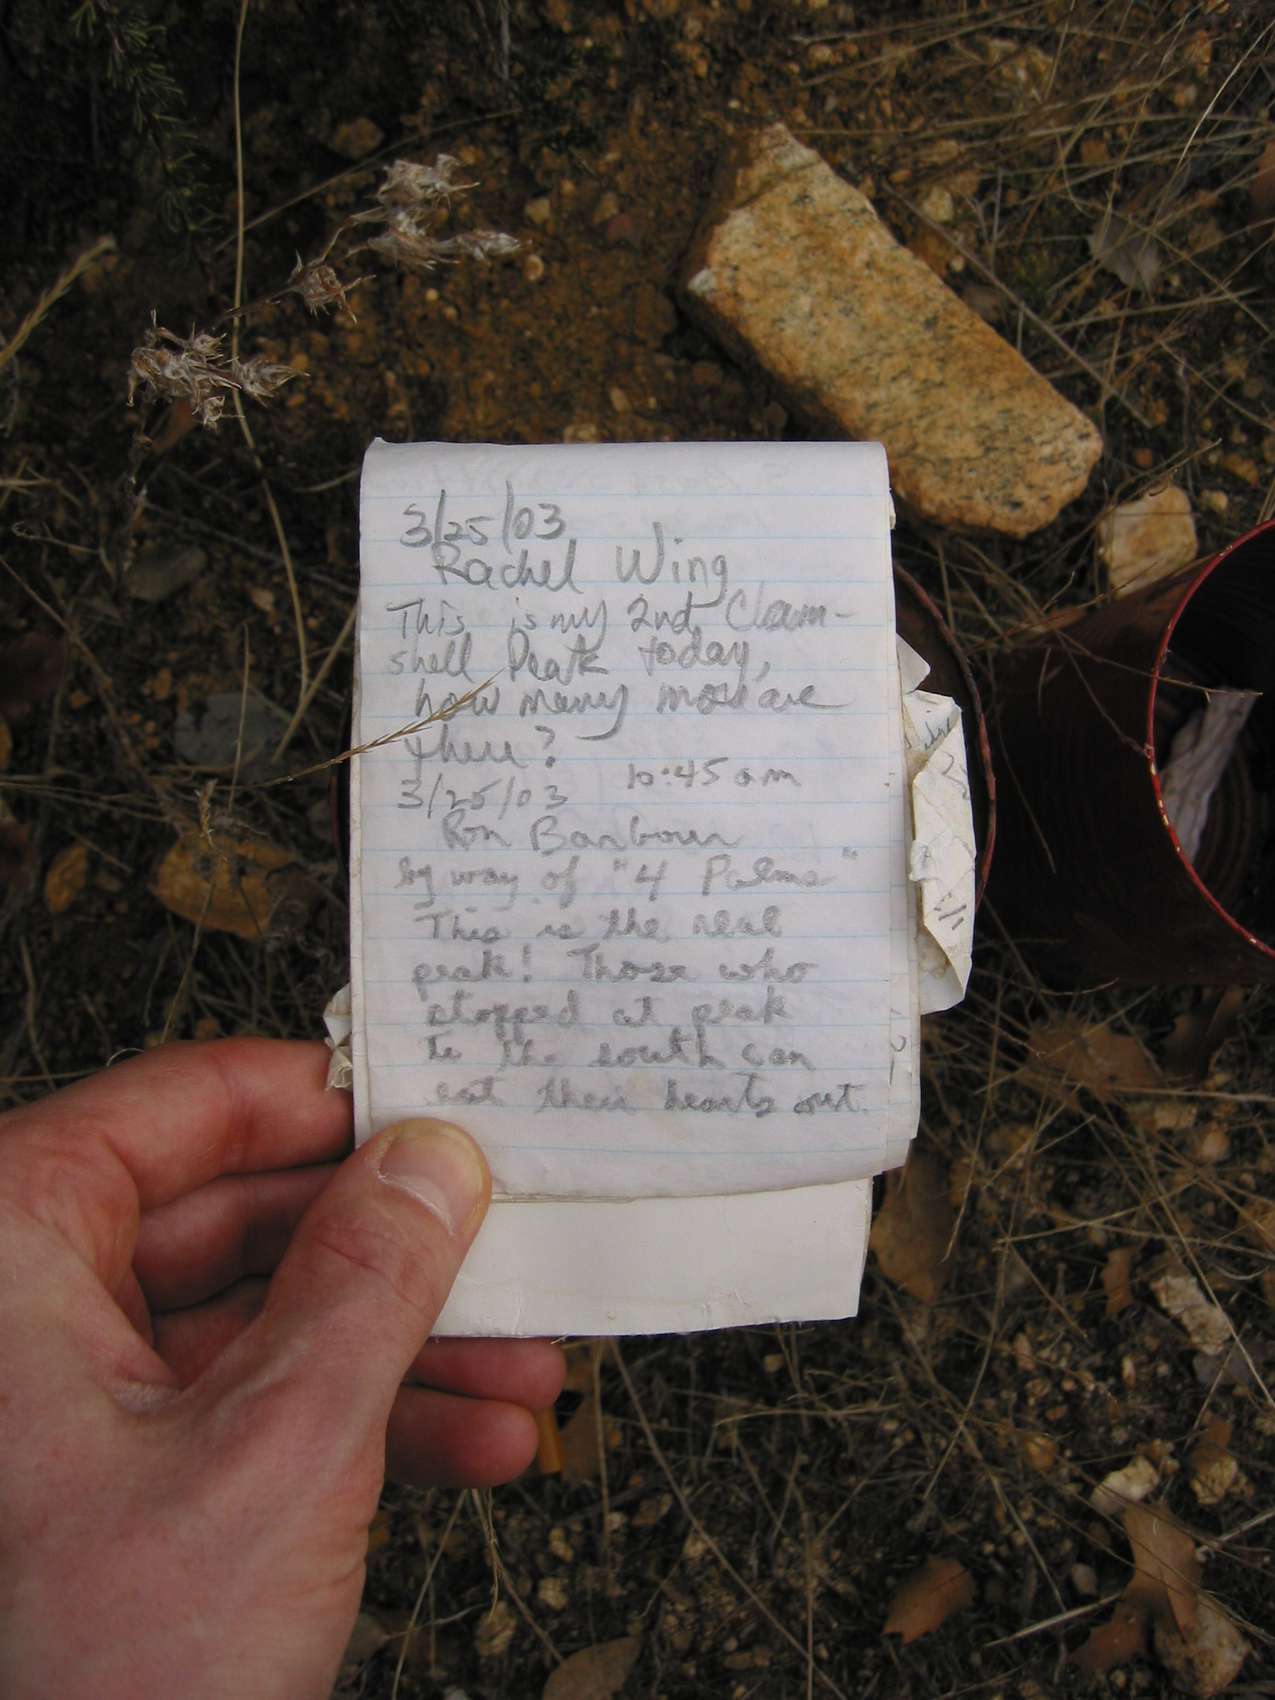 3/25/03
Rachel Wing
This is my 2nd Clam-
shell Peak today,
how many more are
there?
3/25/03 10:45 am
Ron Barbour
by way of "4 Palms"
This is the real
peak! Those who
stopped at peak
to the south can
eat their hearts out.